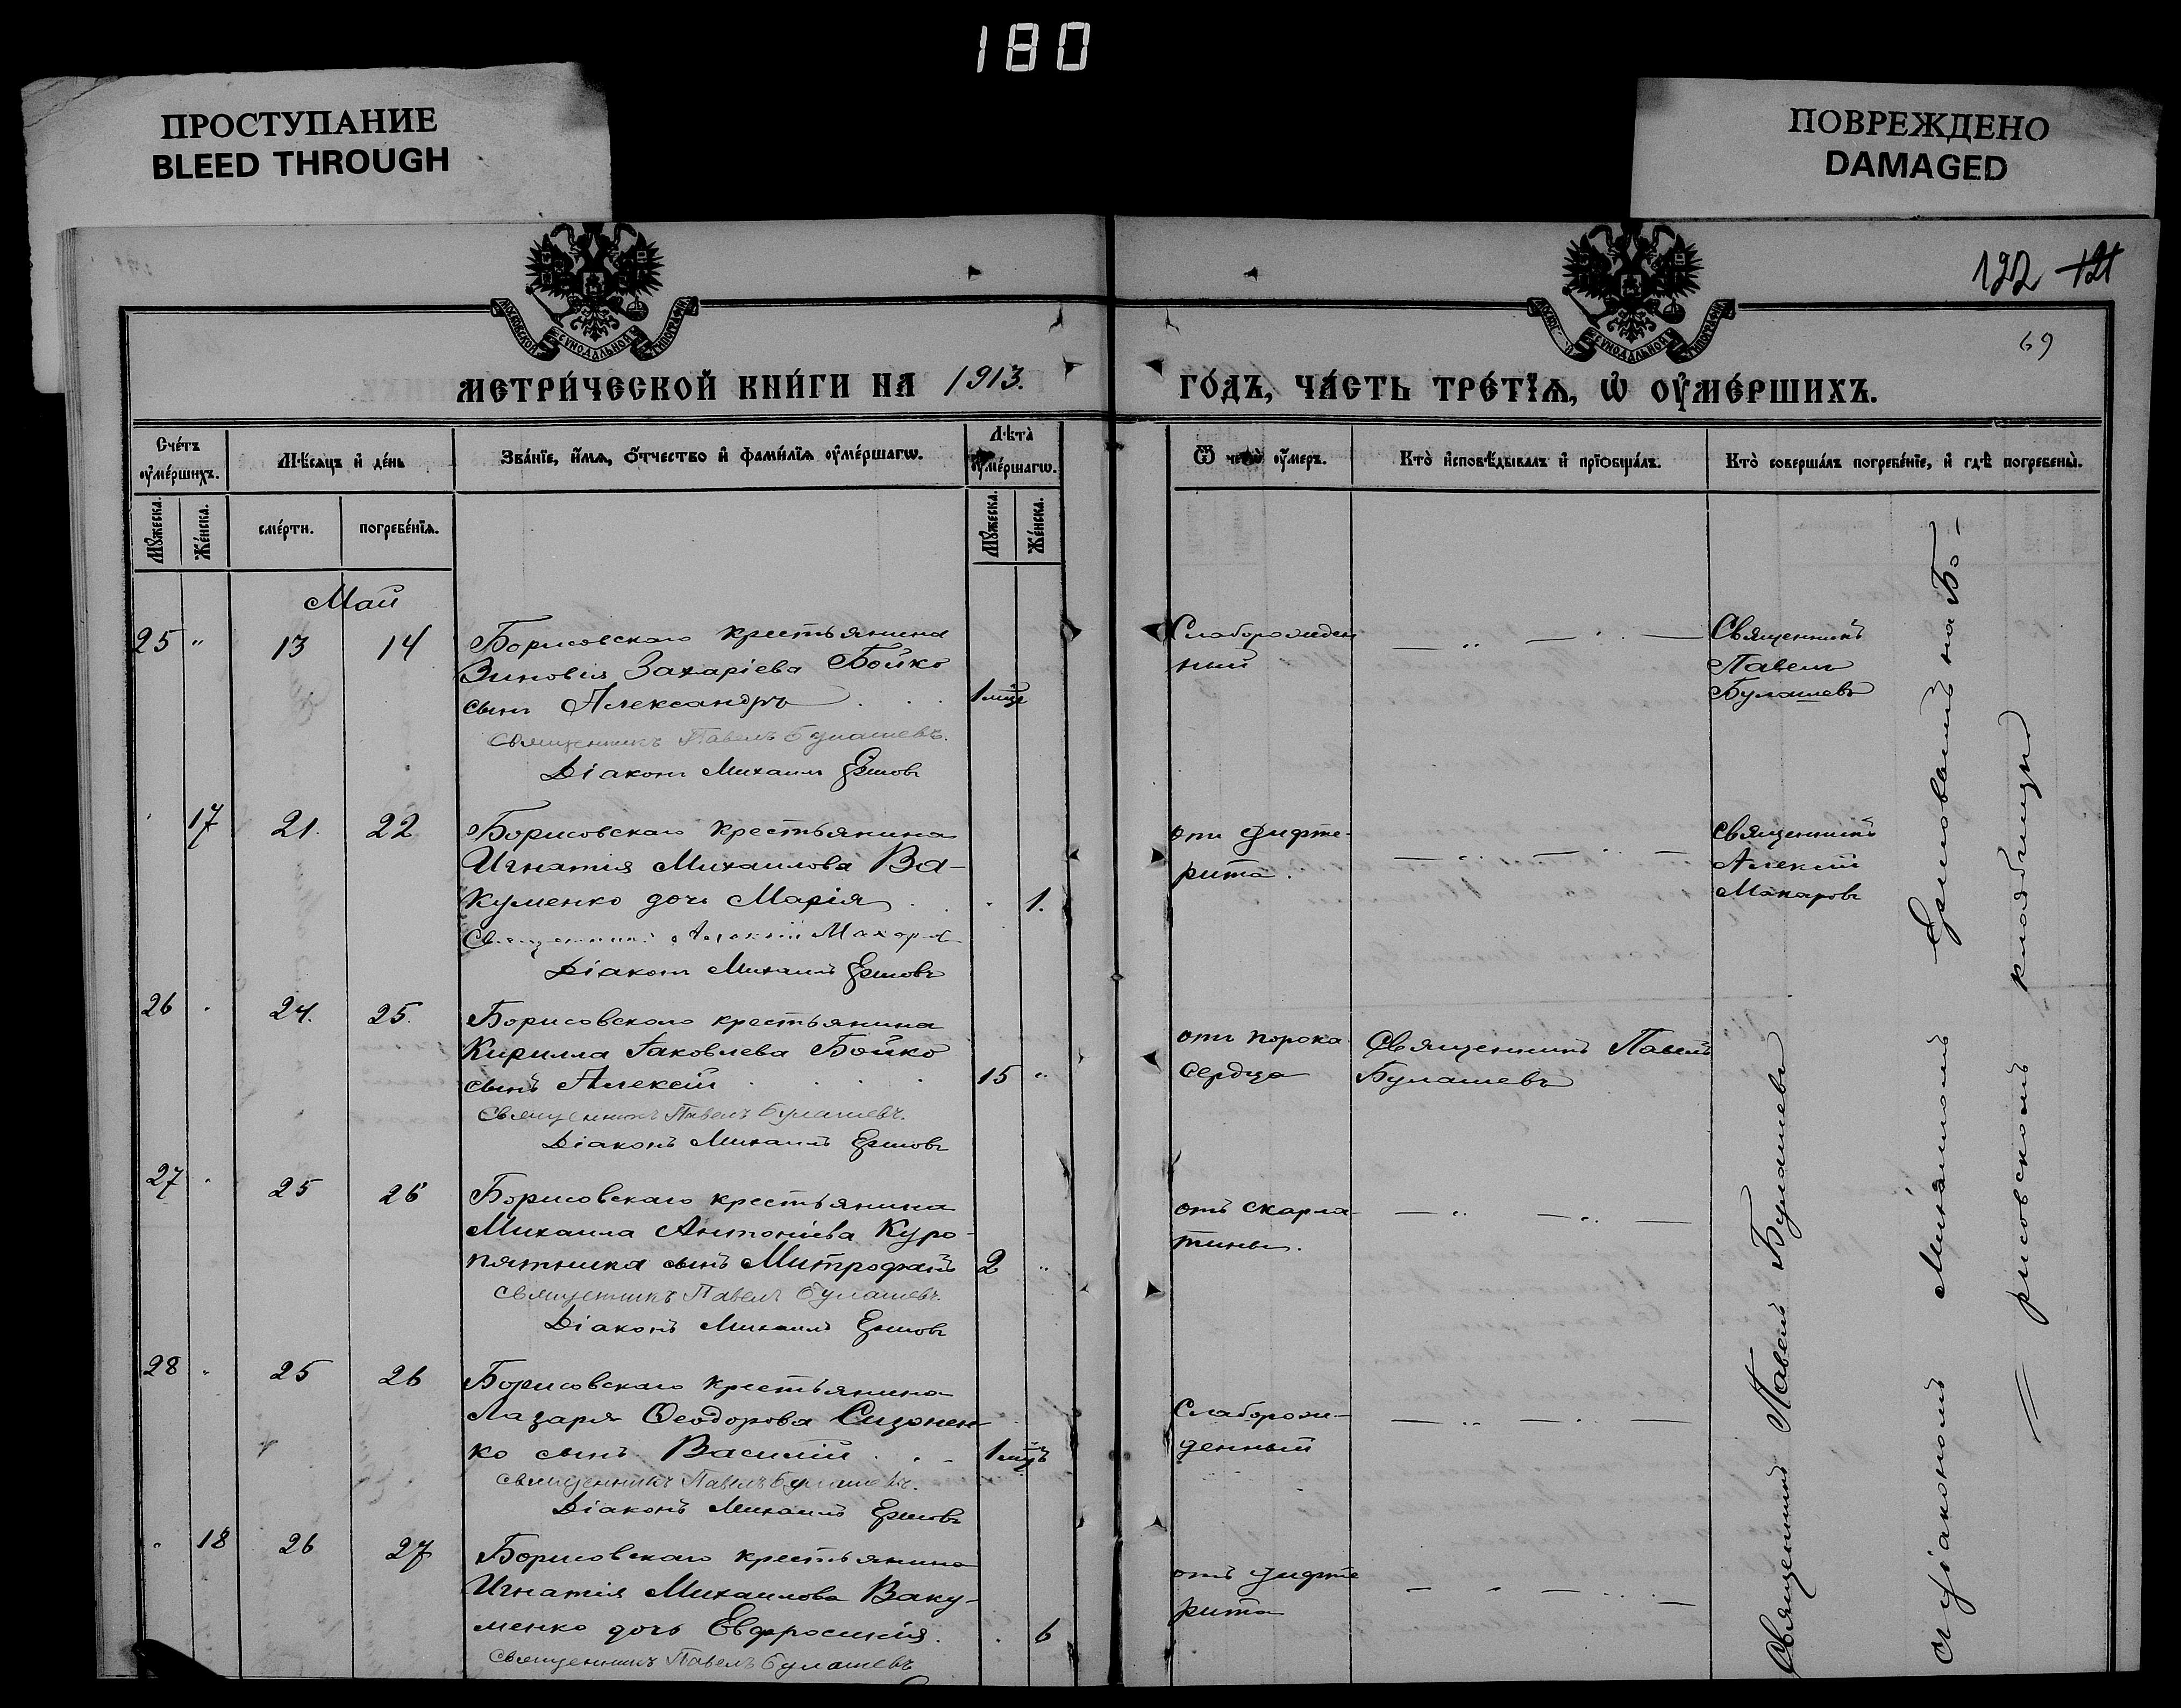 180
ПРОСТУПАНИЕ
BLEED THROUGH
ПОВРЕЖДЕНО
DAMAGED
МОСКОВСКОЙ СѴНОДАЛЬНОЙ ТИПОГРАФІИ
СѴНОДАЛЬНОЙ ТИПОГРАФІИ
122 121
69
МЕТРИ́ЧЕСКОЙ КНИ́ГИ НА 1913. ГО́ДЪ, ЧА́СТЬ ТРЕ́ТІѦ, Ѡ ОУМЕ́РШИХЪ.
Сче́тъ оуме́ршихъ.
Мѣсяцъ и де́нь
Зва́нїе, и́мѧ, о́тчество и фами́лїѧ оуме́ршагѡ.
Лѣта̀ оуме́ршагѡ.
Ѿ чегѡ̀ оу́меръ.
Кто̀ и҆сповѣ́дывалъ и҆ прїѡбща́лъ.
Кто̀ соверша́лъ погребе́нїе, и҆ гдѣ̀ погребены̀.
Мꙋ́жеска.
Же́нска.
сме́рти.
погребе́нїѧ.
Мꙋ́жеска.
Же́нска.
Май
25 " 13 14 Борисовскаго крестьянина
Зиновія Захаріева Бойко
сынъ Александръ . . . 1 мцъ
Священникъ Павелъ Булашевъ.
Діаконъ Михаилъ Ершовъ
Слаборожден
ный
Священникъ
Павелъ
Булашевъ
17 21. 22 Борисовскаго крестьянина
Игнатія Михаилова Ва-
куменко дочь Марія . . . 1.
Священникъ Алексій Макаровъ
Діаконъ Михаилъ Ершовъ
отъ дифте-
рита.
Священникъ
Алексій
Макаровъ
26 24. 25. Борисовскаго крестьянина
Кирилла Іаковлева Бойко
сынъ Алексій . . . . 15 "
Священникъ Павелъ Булашевъ.
Діаконъ Михаилъ Ершовъ
отъ порока
сердца
Священникъ Павелъ
Булашевъ
27 25 26 Борисовскаго крестьянина
Михаила Антоніева Куро-
пятника сынъ Митрофанъ 2 "
Священникъ Павелъ Булашевъ.
Діаконъ Михаилъ Ершовъ
отъ скарла-
тины.
28 25 26 Борисовскаго крестьянина
Лазаря Ѳеодорова Сизонен-
ко сынъ Василій . . 1 мцъ
Священникъ Павелъ Булашевъ.
Діаконъ Михаилъ Ершовъ
Слаборож-
денный
18 26 27 Борисовскаго крестьянина
Игнатія Михаилова Ваку-
менко дочь Евфросинія. . 6
Священникъ Павелъ Булашевъ
отъ дифте
рита
Священникъ Павелъ Булашевъ
съ діакономъ Михаиломъ Ершовымъ на Бо-
рисовскомъ кладбищѣ